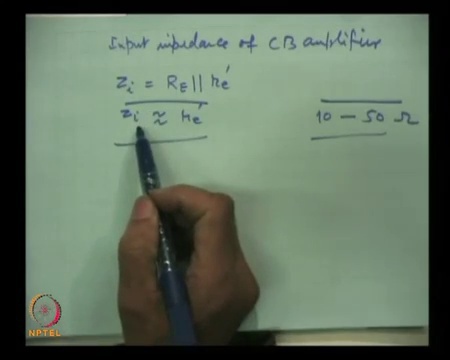 Input impedance of CB amplifier
zi = RE || re′
zi ≈ re′
10 – 50 Ω
NPTEL